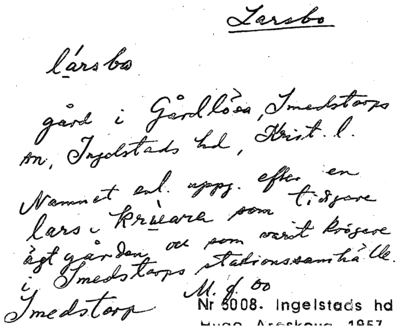 Larsbo
lársbo
gård i Gårdlösa, Smedstorps
sn, Ingelstads hd, Krist. l.
Namnet enl. uppg. efter en
lars i krùeara som tidigare
ägt gården och som varit krögare
i Smedstorps stationssamhälle.
Smedstorp M. f. oo
Nr 3008. Ingelstads hd
Hugo Areskoug 1957